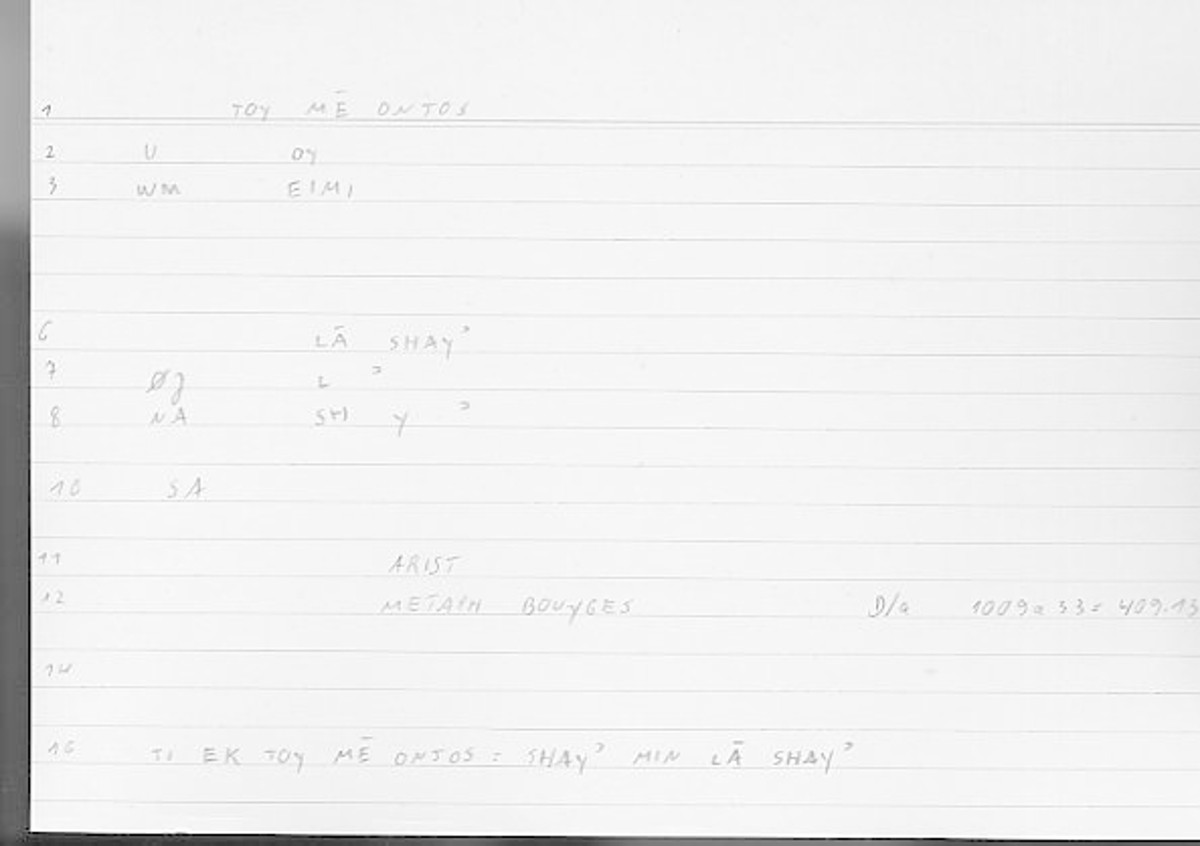 1 TOY MĒ ONTOS
2 U OY
3 WM EIMI
6 LĀ SHAYʾ
7 ØJ L ʾ
8 NA SH Y ʾ
10 SA
11 ARIST
12 METAPH BOUYGES D/a 1009a 33= 409.13
14
16 TI EK TOY MĒ ONTOS = SHAYʾ MIN LĀ SHAYʾ